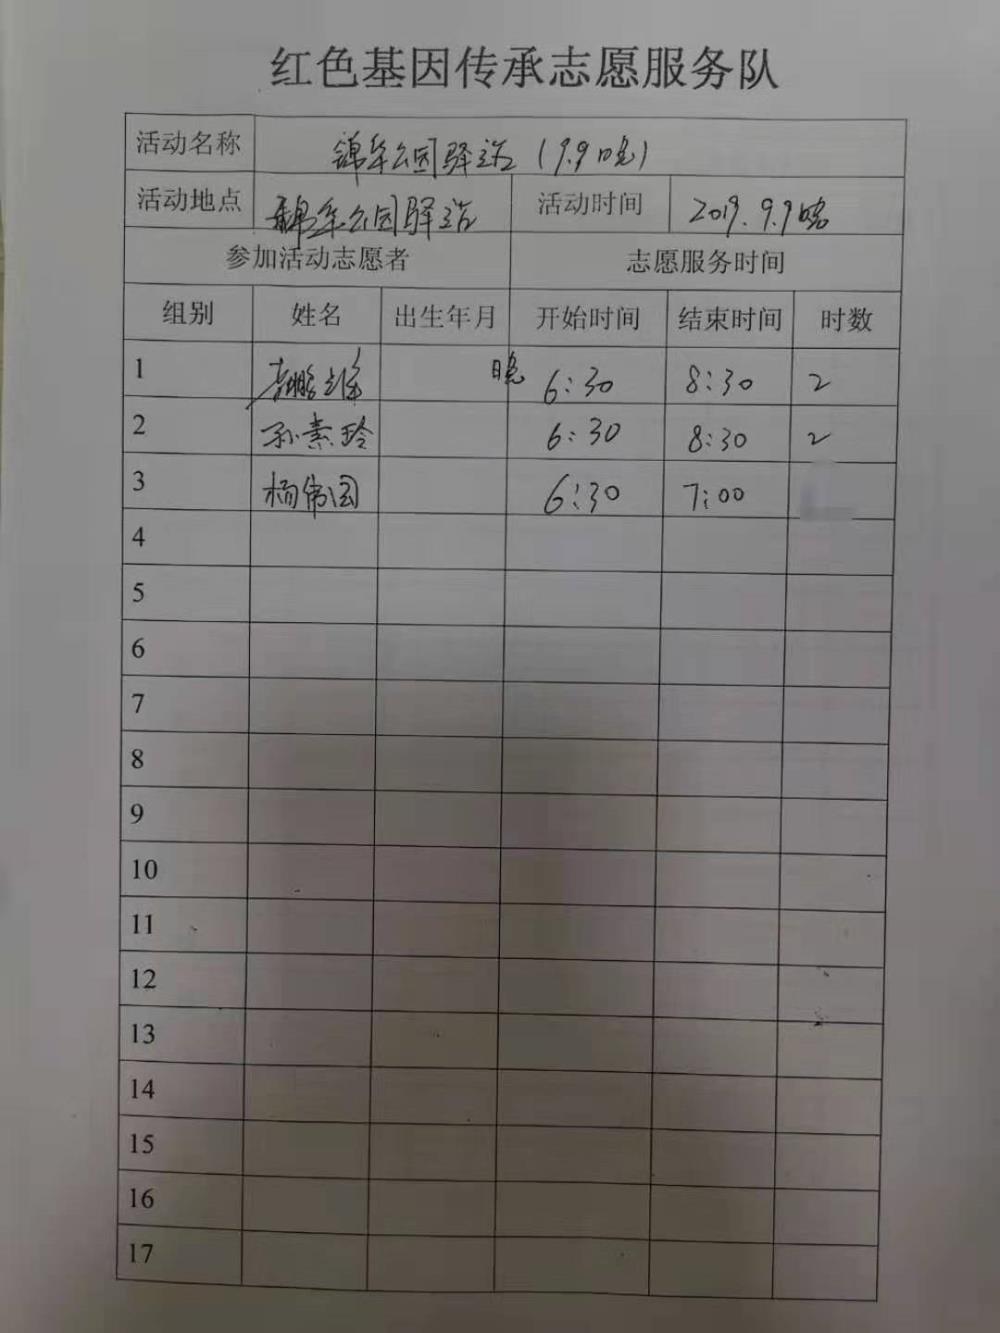 红色基因传承志愿服务队
活动名称 锦年公园驿站（9.9晚）
活动地点 锦年公园驿站 活动时间 2019.9.9晚
参加活动志愿者 志愿服务时间
组别 姓名 出生年月 开始时间 结束时间 时数
1 晚 6:30 8:30 2
2 孙素玲 6:30 8:30 2
3 杨伟国 6:30 7:00
4
5
6
7
8
9
10
11
12
13
14
15
16
17